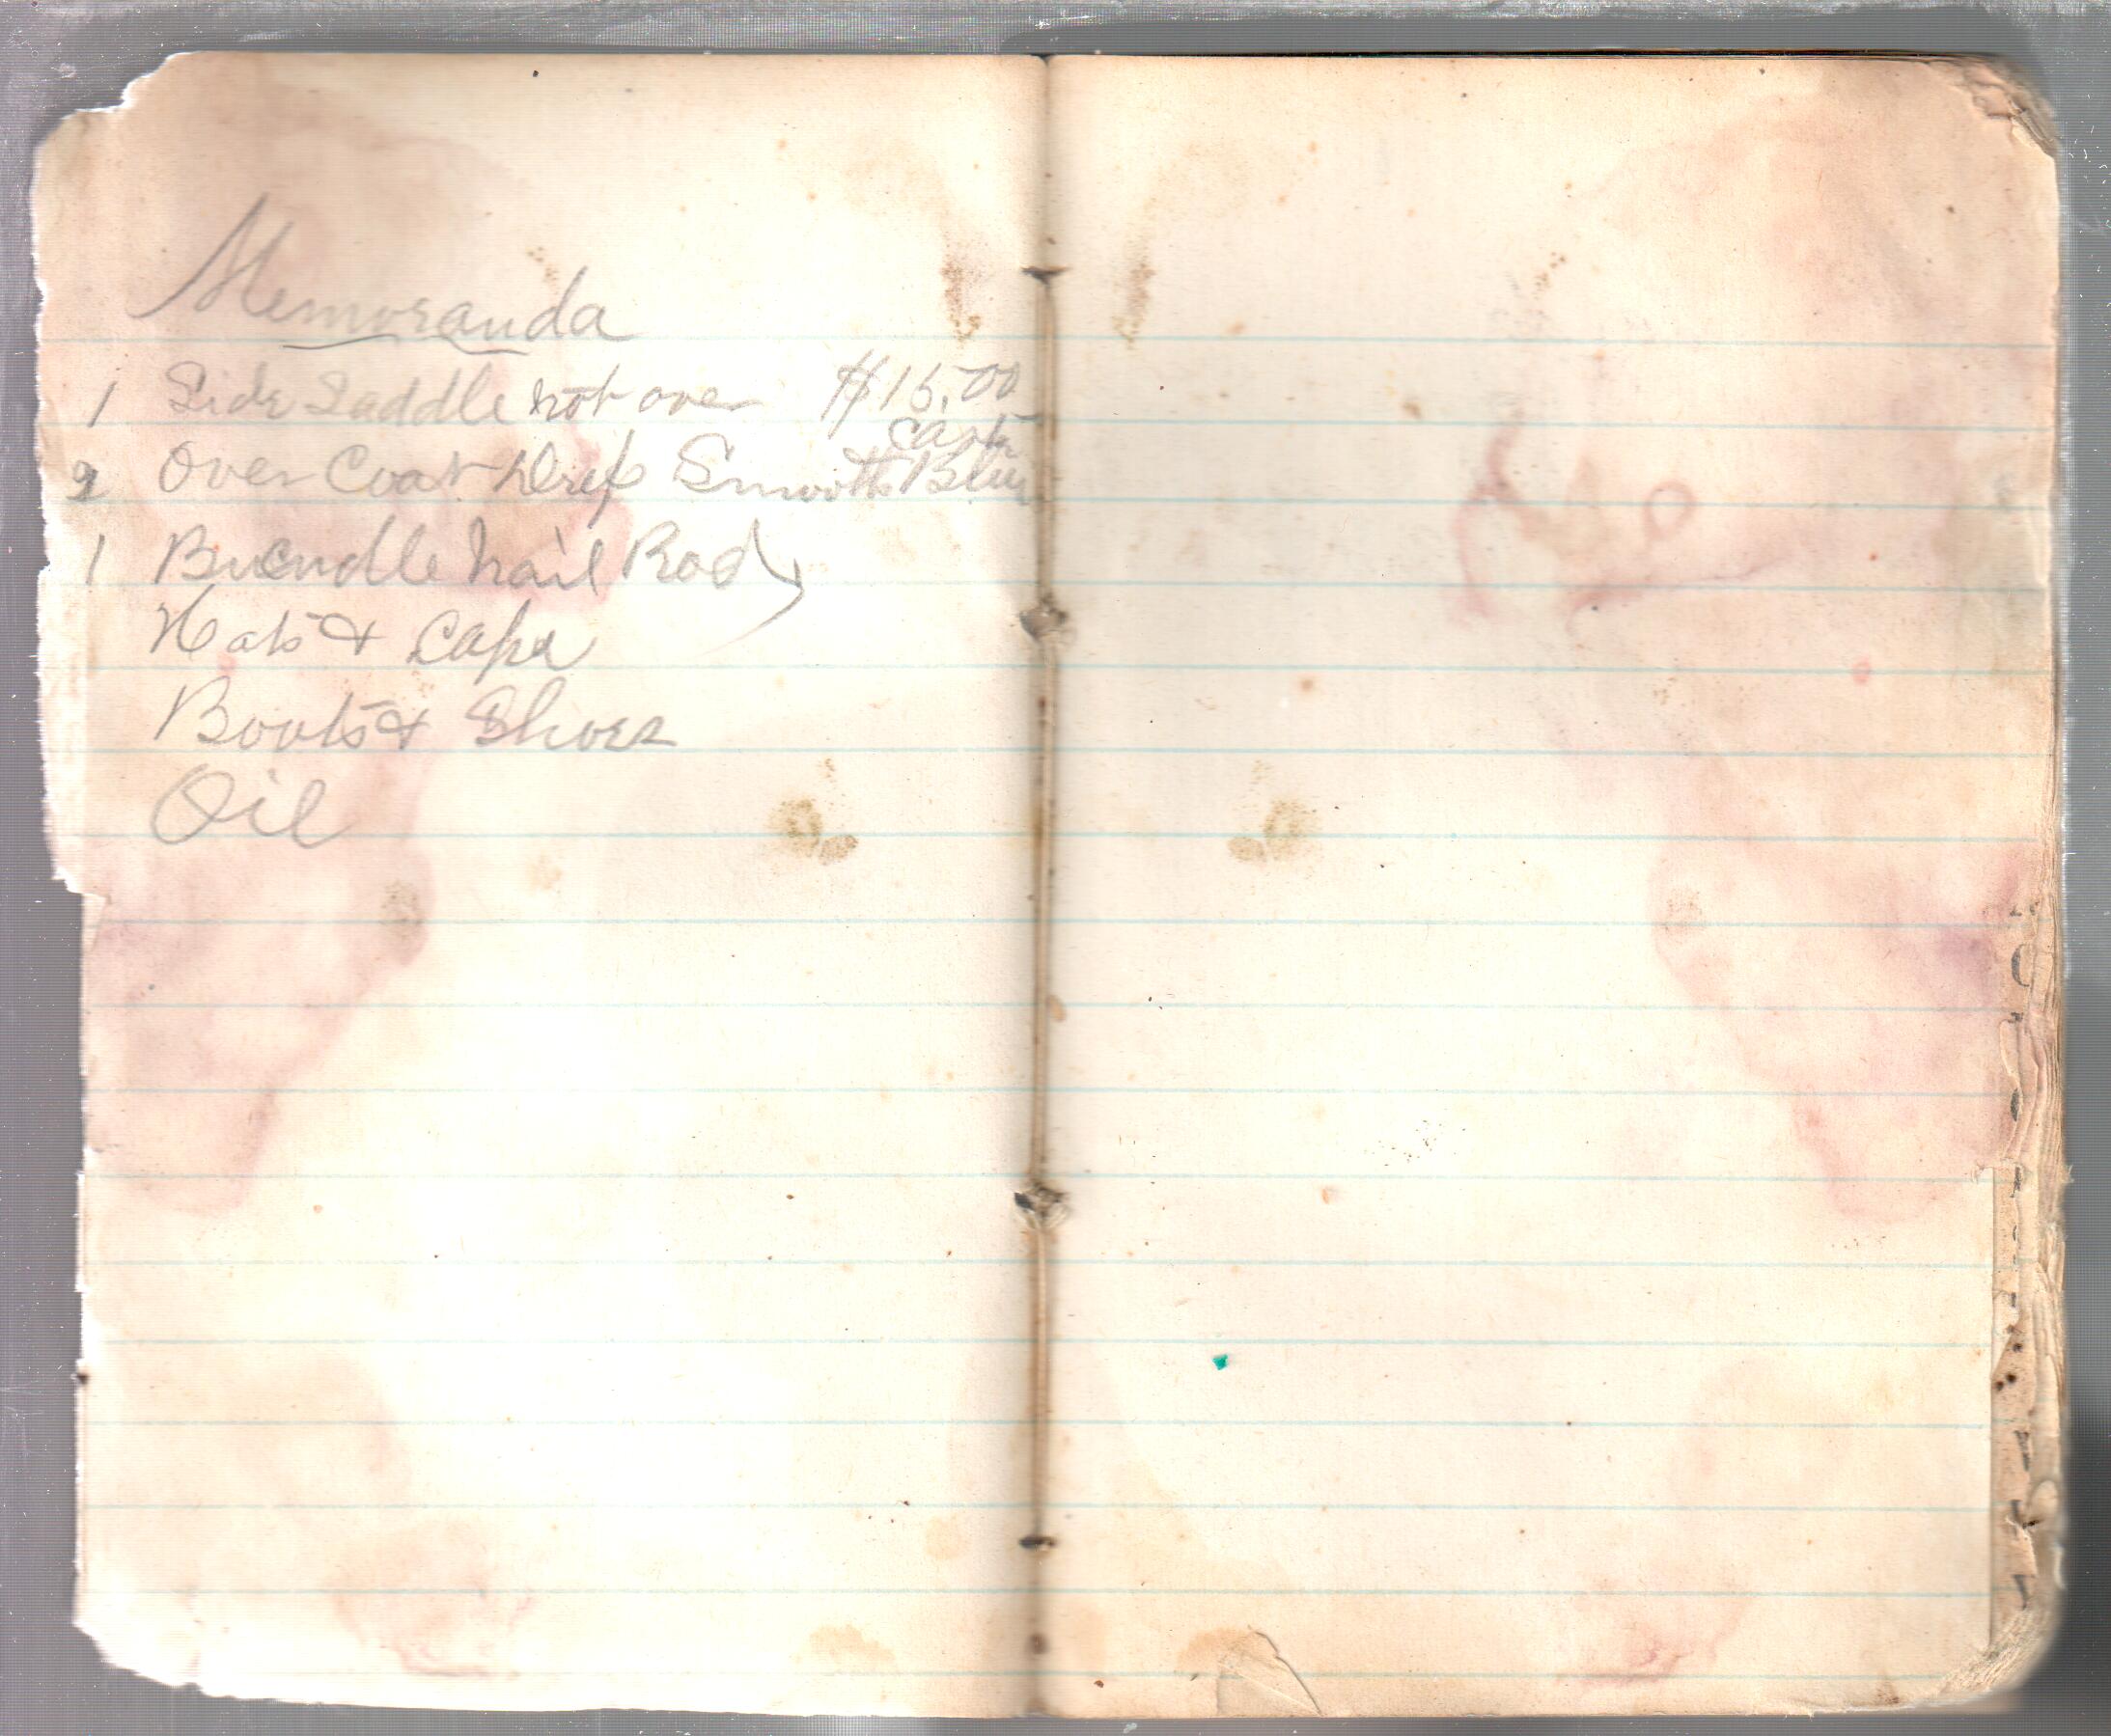 Memoranda
1 Side Saddle not over $15.00
cash
2 Over Coat Smooth Blue
1 Buendle nail Rod
Hats & Caps
Boots & Shoes
Oil